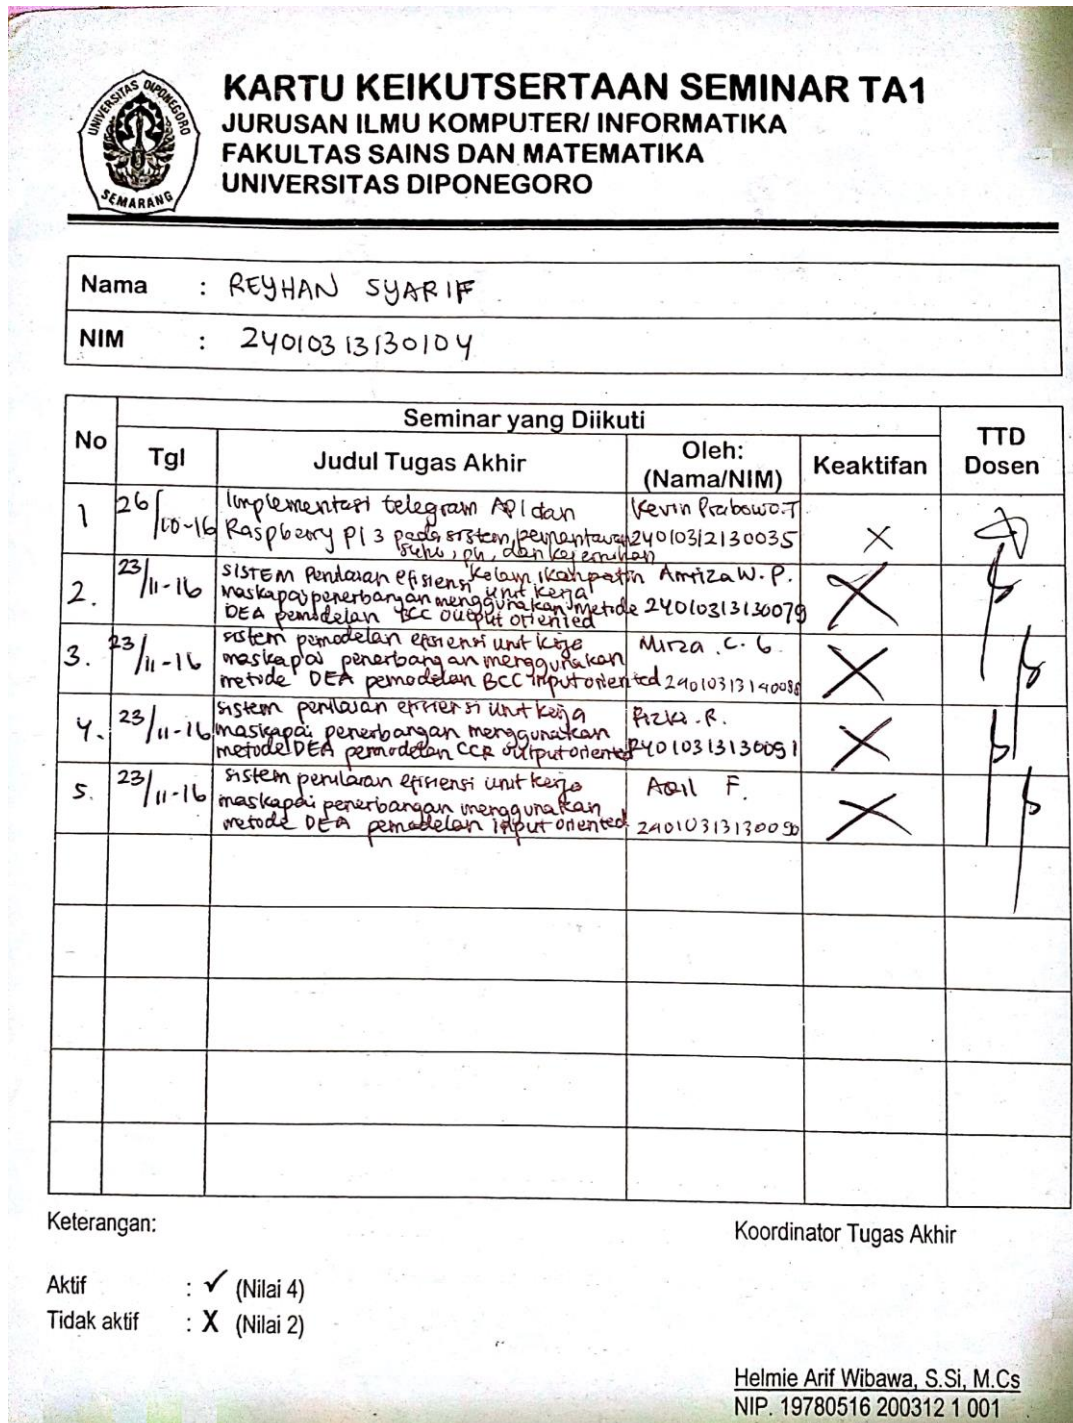 UNIVERSITAS DIPONEGORO
SEMARANG
KARTU KEIKUTSERTAAN SEMINAR TA1
JURUSAN ILMU KOMPUTER/ INFORMATIKA
FAKULTAS SAINS DAN MATEMATIKA
UNIVERSITAS DIPONEGORO
Nama : REYHAN SYARIF
NIM : 24010313130104
No
Seminar yang Diikuti
TTD Dosen
Tgl
Judul Tugas Akhir
Oleh: (Nama/NIM)
Keaktifan
1
26/10-16
Implementasi telegram API dan
Raspberry PI 3 pada sistem pemantauan
suhu, ph, dan kejernihan
kolam ikan patin
Kevin Prabowo.T
24010312130035
X
2.
23/11-16
SISTEM Penilaian efisiensi unit kerja
maskapai penerbangan menggunakan metode
DEA pemodelan BCC output oriented
Amriza W. P.
24010313130079
X
3.
23/11-16
sistem pemodelan efisiensi unit kerja
maskapai penerbangan menggunakan
metode DEA pemodelan BCC input oriented
Mirza . C. G.
X
4.
23/11-16
sistem penilaian efisiensi unit kerja
maskapai penerbangan menggunakan
metode DEA pemodelan CCR output oriented
Rizki . R.
24010313130091
X
5.
23/11-16
sistem penilaian efisiensi unit kerja
maskapai penerbangan menggunakan
metode DEA pemodelan input oriented
Aqil F.
X
Keterangan:
Koordinator Tugas Akhir
Aktif : ✓ (Nilai 4)
Tidak aktif : X (Nilai 2)
Helmie Arif Wibawa, S.Si, M.Cs
NIP. 19780516 200312 1 001